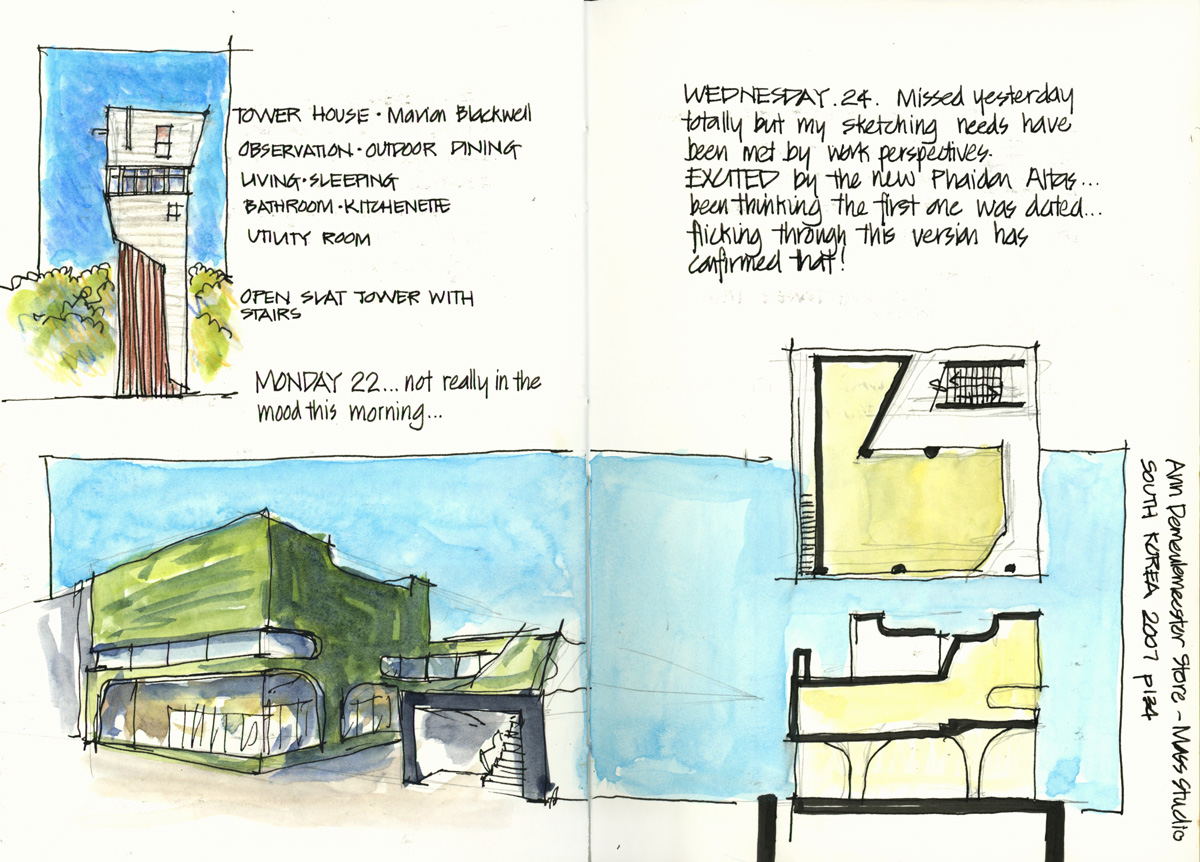 TOWER HOUSE · Marlon Blackwell
OBSERVATION · OUTDOOR DINING
LIVING · SLEEPING
BATHROOM · KITCHENETTE
UTILITY ROOM
OPEN SLAT TOWER WITH
STAIRS
MONDAY 22... not really in the
mood this morning...
WEDNESDAY. 24. Missed yesterday
totally but my sketching needs have
been met by work perspectives.
EXCITED by the new Phaidon Altas...
been thinking the first one was dated...
flicking through this version has
confirmed that!
Ann Demeulemeester Store - Mass Studio
SOUTH KOREA 2007 p124